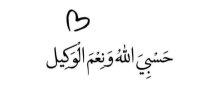 حَسْبِيَ اللهُ وَنِعْمَ الْوَكِيل